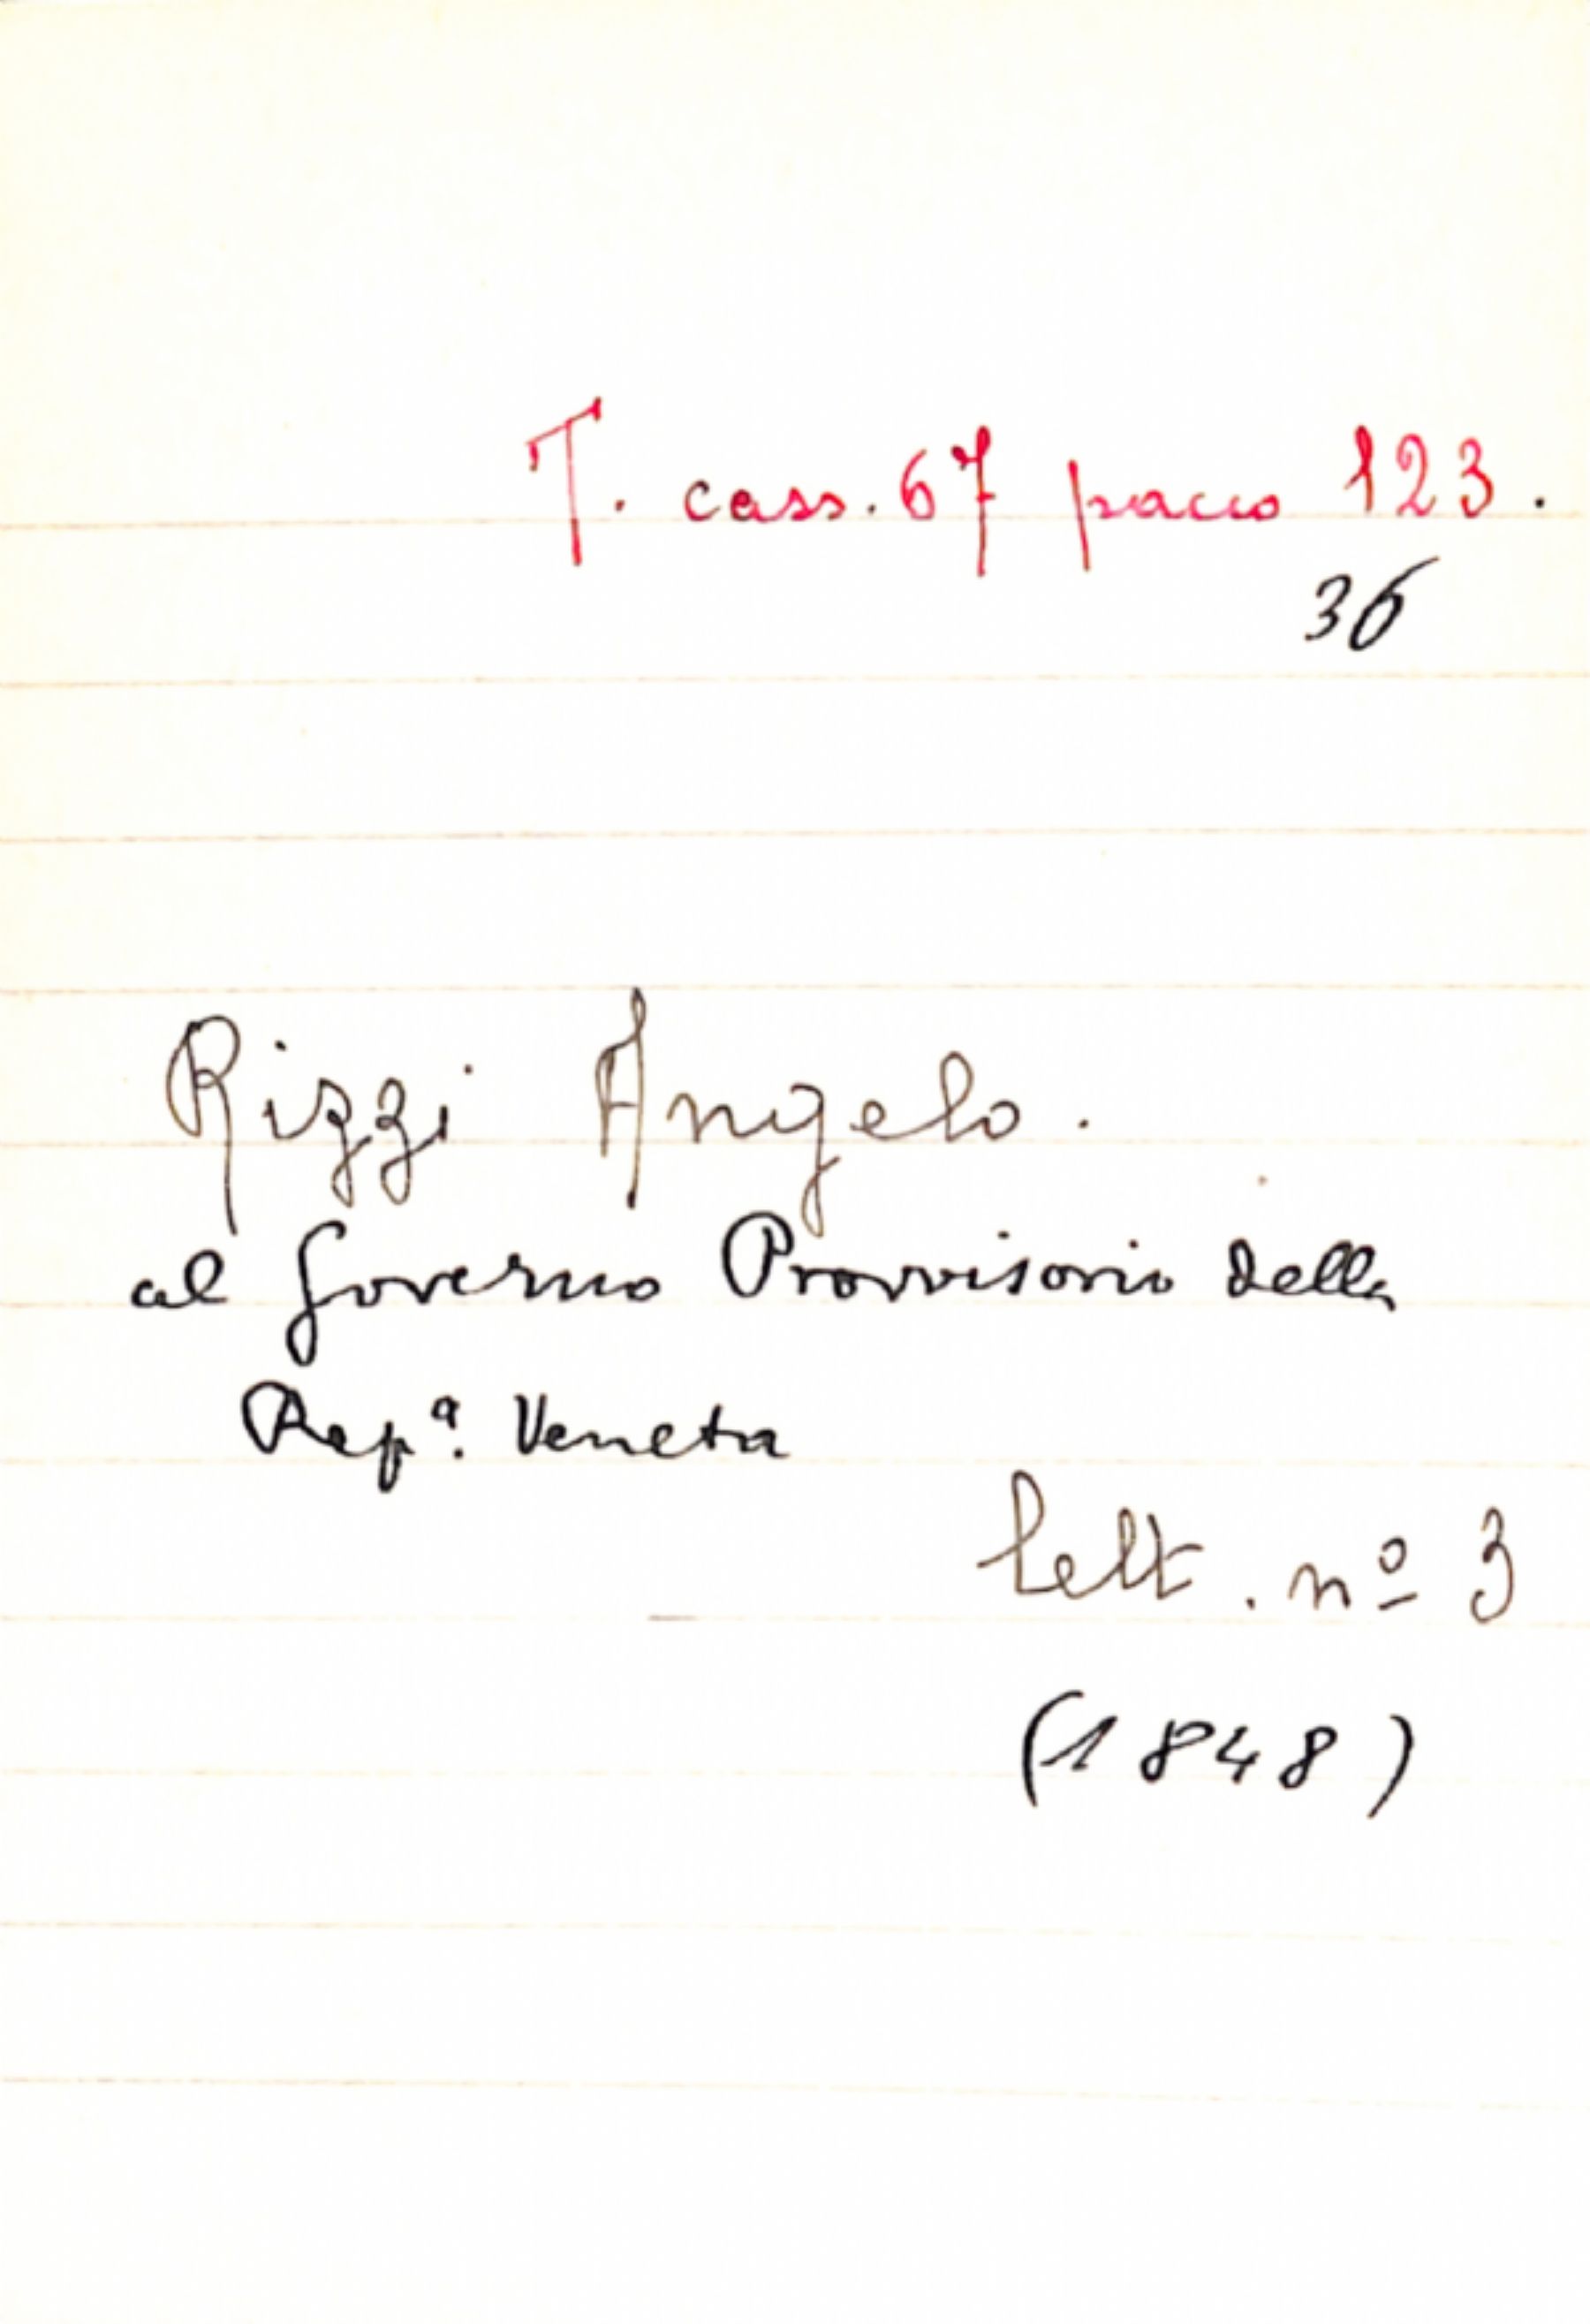 T. cass. 67 pacco 123.
36
Rizzi Angelo.
al Governo Provvisorio della
Repª. Veneta
lett. nº 3
(1848)